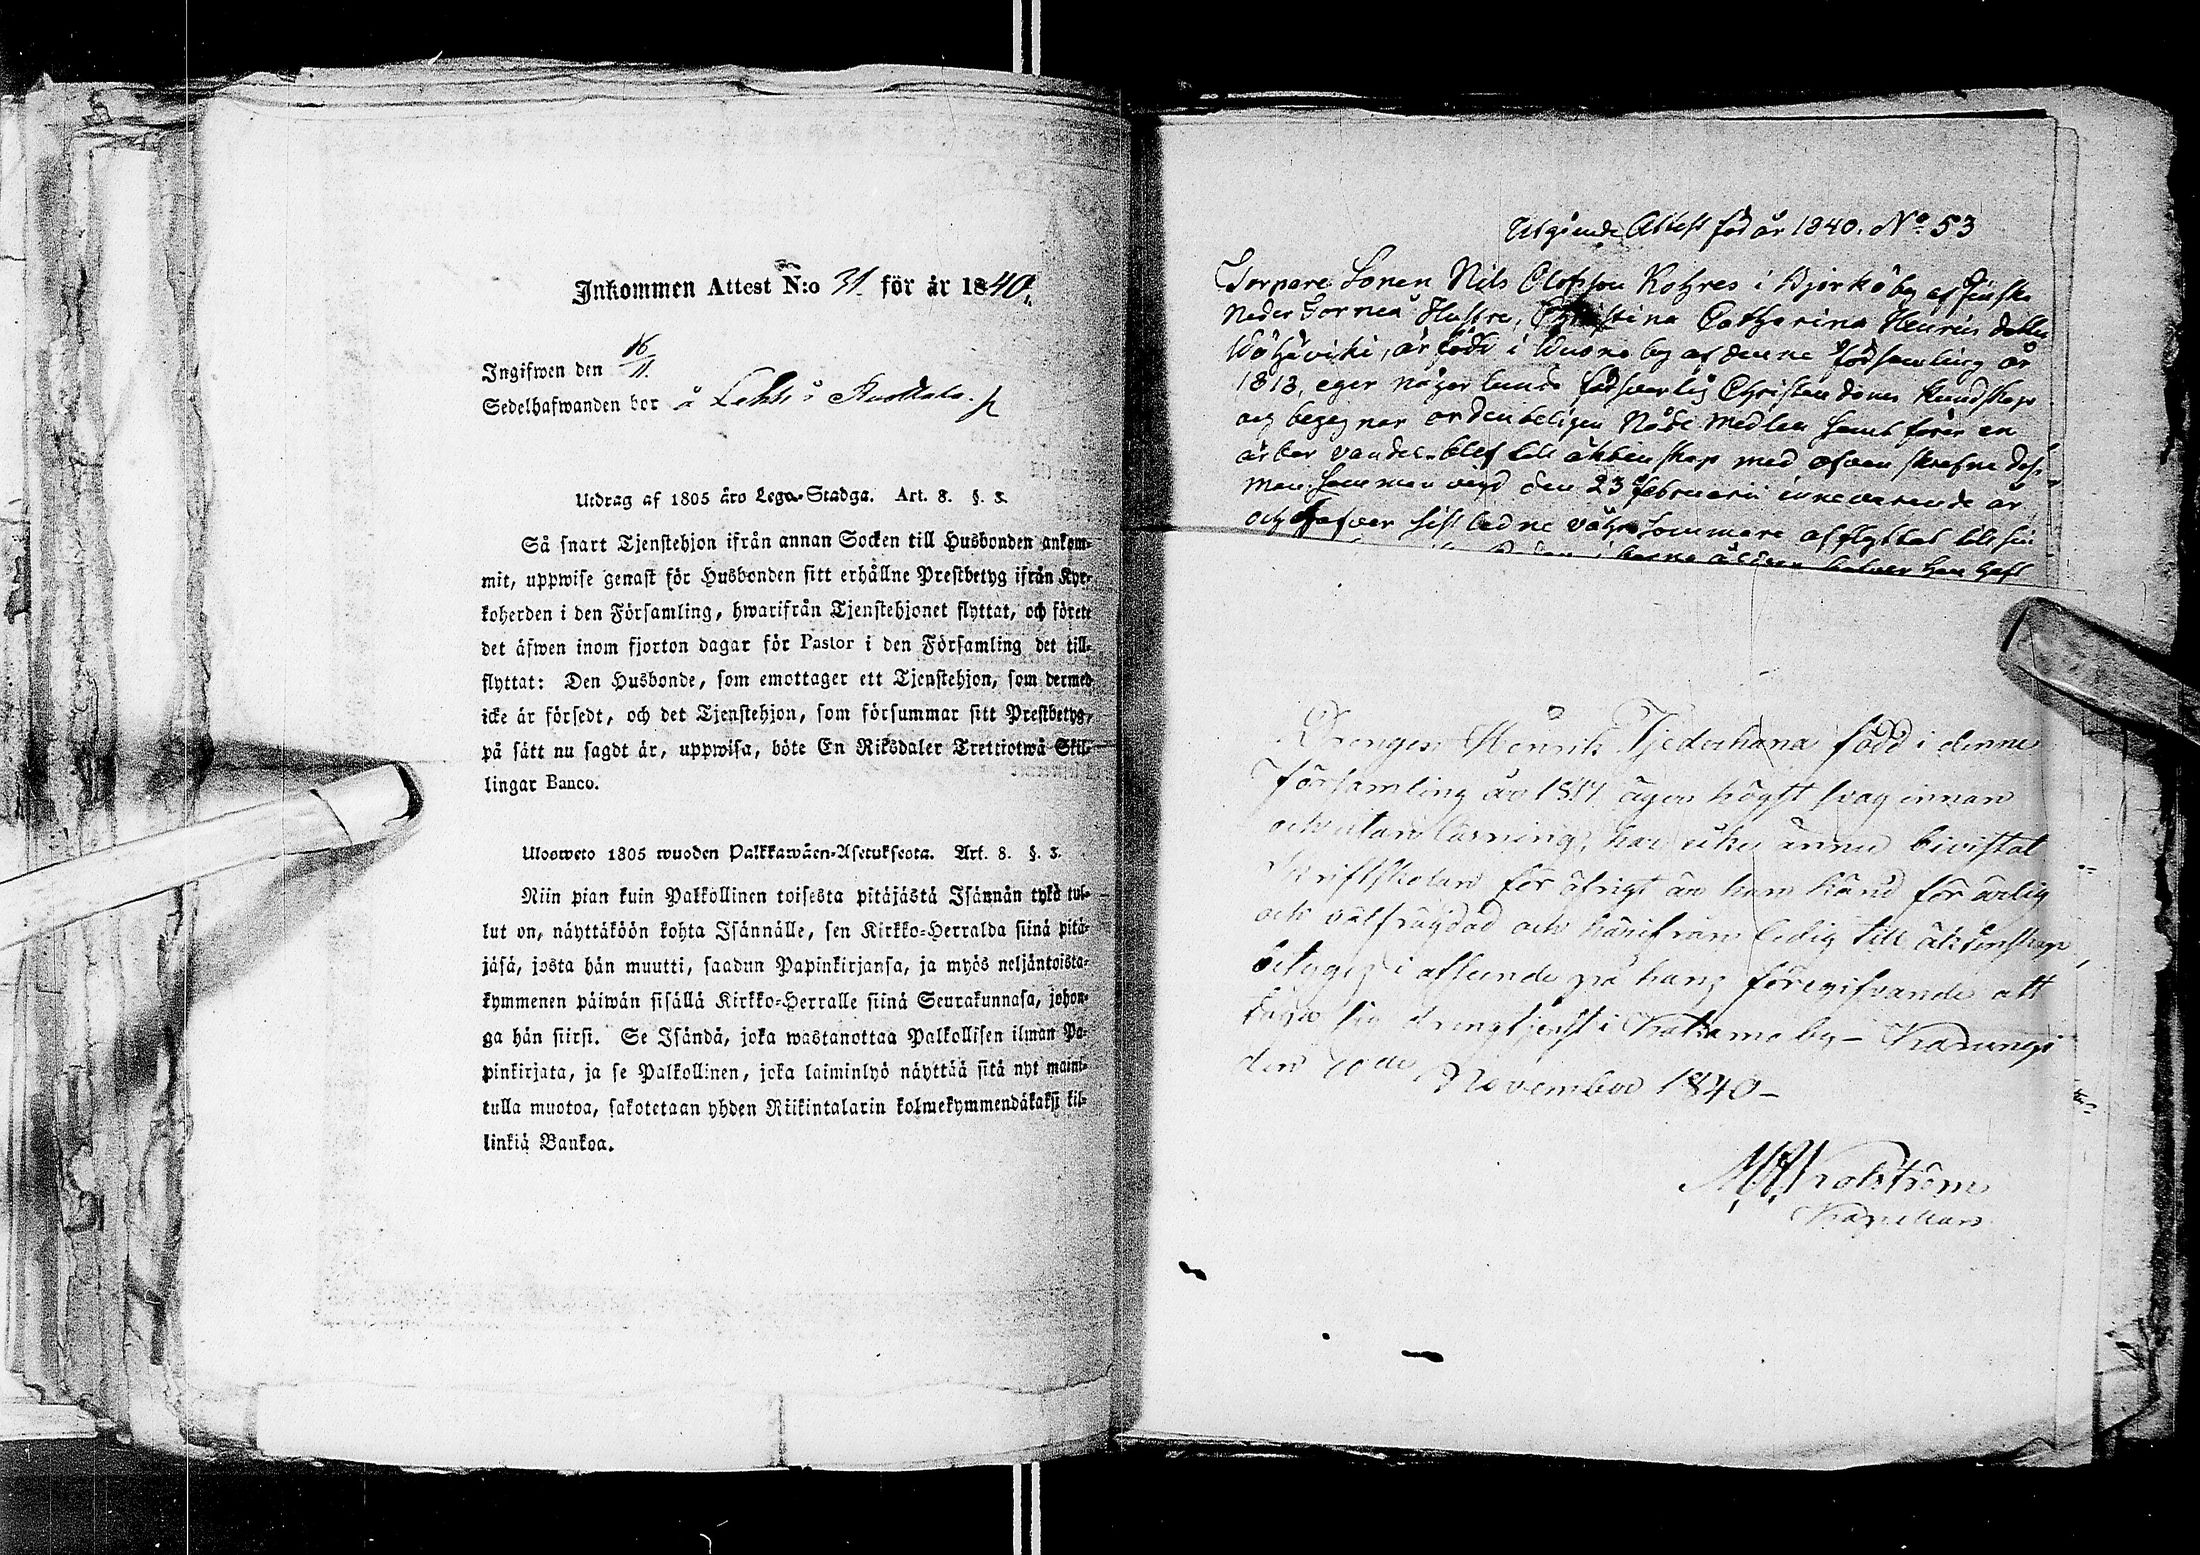 Inkommen Attest N:o 31. för år 1840.
Ingifwen den 16/11.
Sedelhafwanden bor å Lehto i Ruottala.
Utdrag af 1805 års Lego-Stadga. Art. 8. §. 3.
Så snart Tjenstehjon ifrån annan Socken till Husbonden ankom-
mit, uppwise genast för Husbonden sitt erhållne Prestbetyg ifrån Kyr-
koherden i den Församling, hwarifrån Tjenstehjonet flyttat, och förete
det äfwen inom fjorton dagar för Pastor i den Församling det till-
flyttat: Den Husbonde, som emottager ett Tjenstehjon, som dermed
icke är försedt, och det Tjenstehjon, som försummar sitt Prestbetyg,
på sätt nu sagdt är, uppwisa, böte En Riksdaler Trettiotwå Skil-
lingar Banco.
Ulosweto 1805 wuoden Palkkawäen-Asetuksesta. Art. 8. §. 3.
Niin pian kuin Palkollinen toisesta pitäjästä Isännän tykö tul-
lut on, näyttäköön kohta Isännälle, sen Kirkko-Herralda siinä pitä-
jäsä, josta hän muutti, saadun Papinkirjansa, ja myös neljäntoista-
kymmenen päiwän sisällä Kirkko-Herralle siinä Seurakunnasa, johon-
ga hän siirsi. Se Isändä, joka wastanottaa Palkollisen ilman Pa-
pinkirjata, ja se Palkollinen, joka laiminlyö näyttää sitä nyt maini-
tulla muotoa, sakotetaan yhden Riikintalarin kolmekymmendäkaksi kil-
linkiä Bankoa.
Utgående Attest för år 1840. No 53
Torpare Sonen Nils Olofsson Kohres i Björkö by af Finska
Neder Torneå Hustru, Christina Catharina Henrics dotter
, är född i Wuono by af denne församling år
1813, eger någorlunda försvarlig Christendoms kundskap
och begagnar ordenteligen Nådemedlen samt förer en
ärbar vandel. blef till äktenskap med ofvan skrefne
man sammanvigd den 23 Februarii innevarande år
och hafver sistledne sommare afflyttat till sin
Drengen Henrik Tjederhana född i denne
församling år 1817 ägen högst svag innan
och utan läsning, har icke ännu bivistat
Skriftskolan för öfrigt är han känd för ärlig
och välfrägdad och härifrån ledig till äktenskap,
betygez i afseende på hans föregifvande att
taga sig drengtjenst i by – Karungi
den 10de November 1840 –
Kapellan.